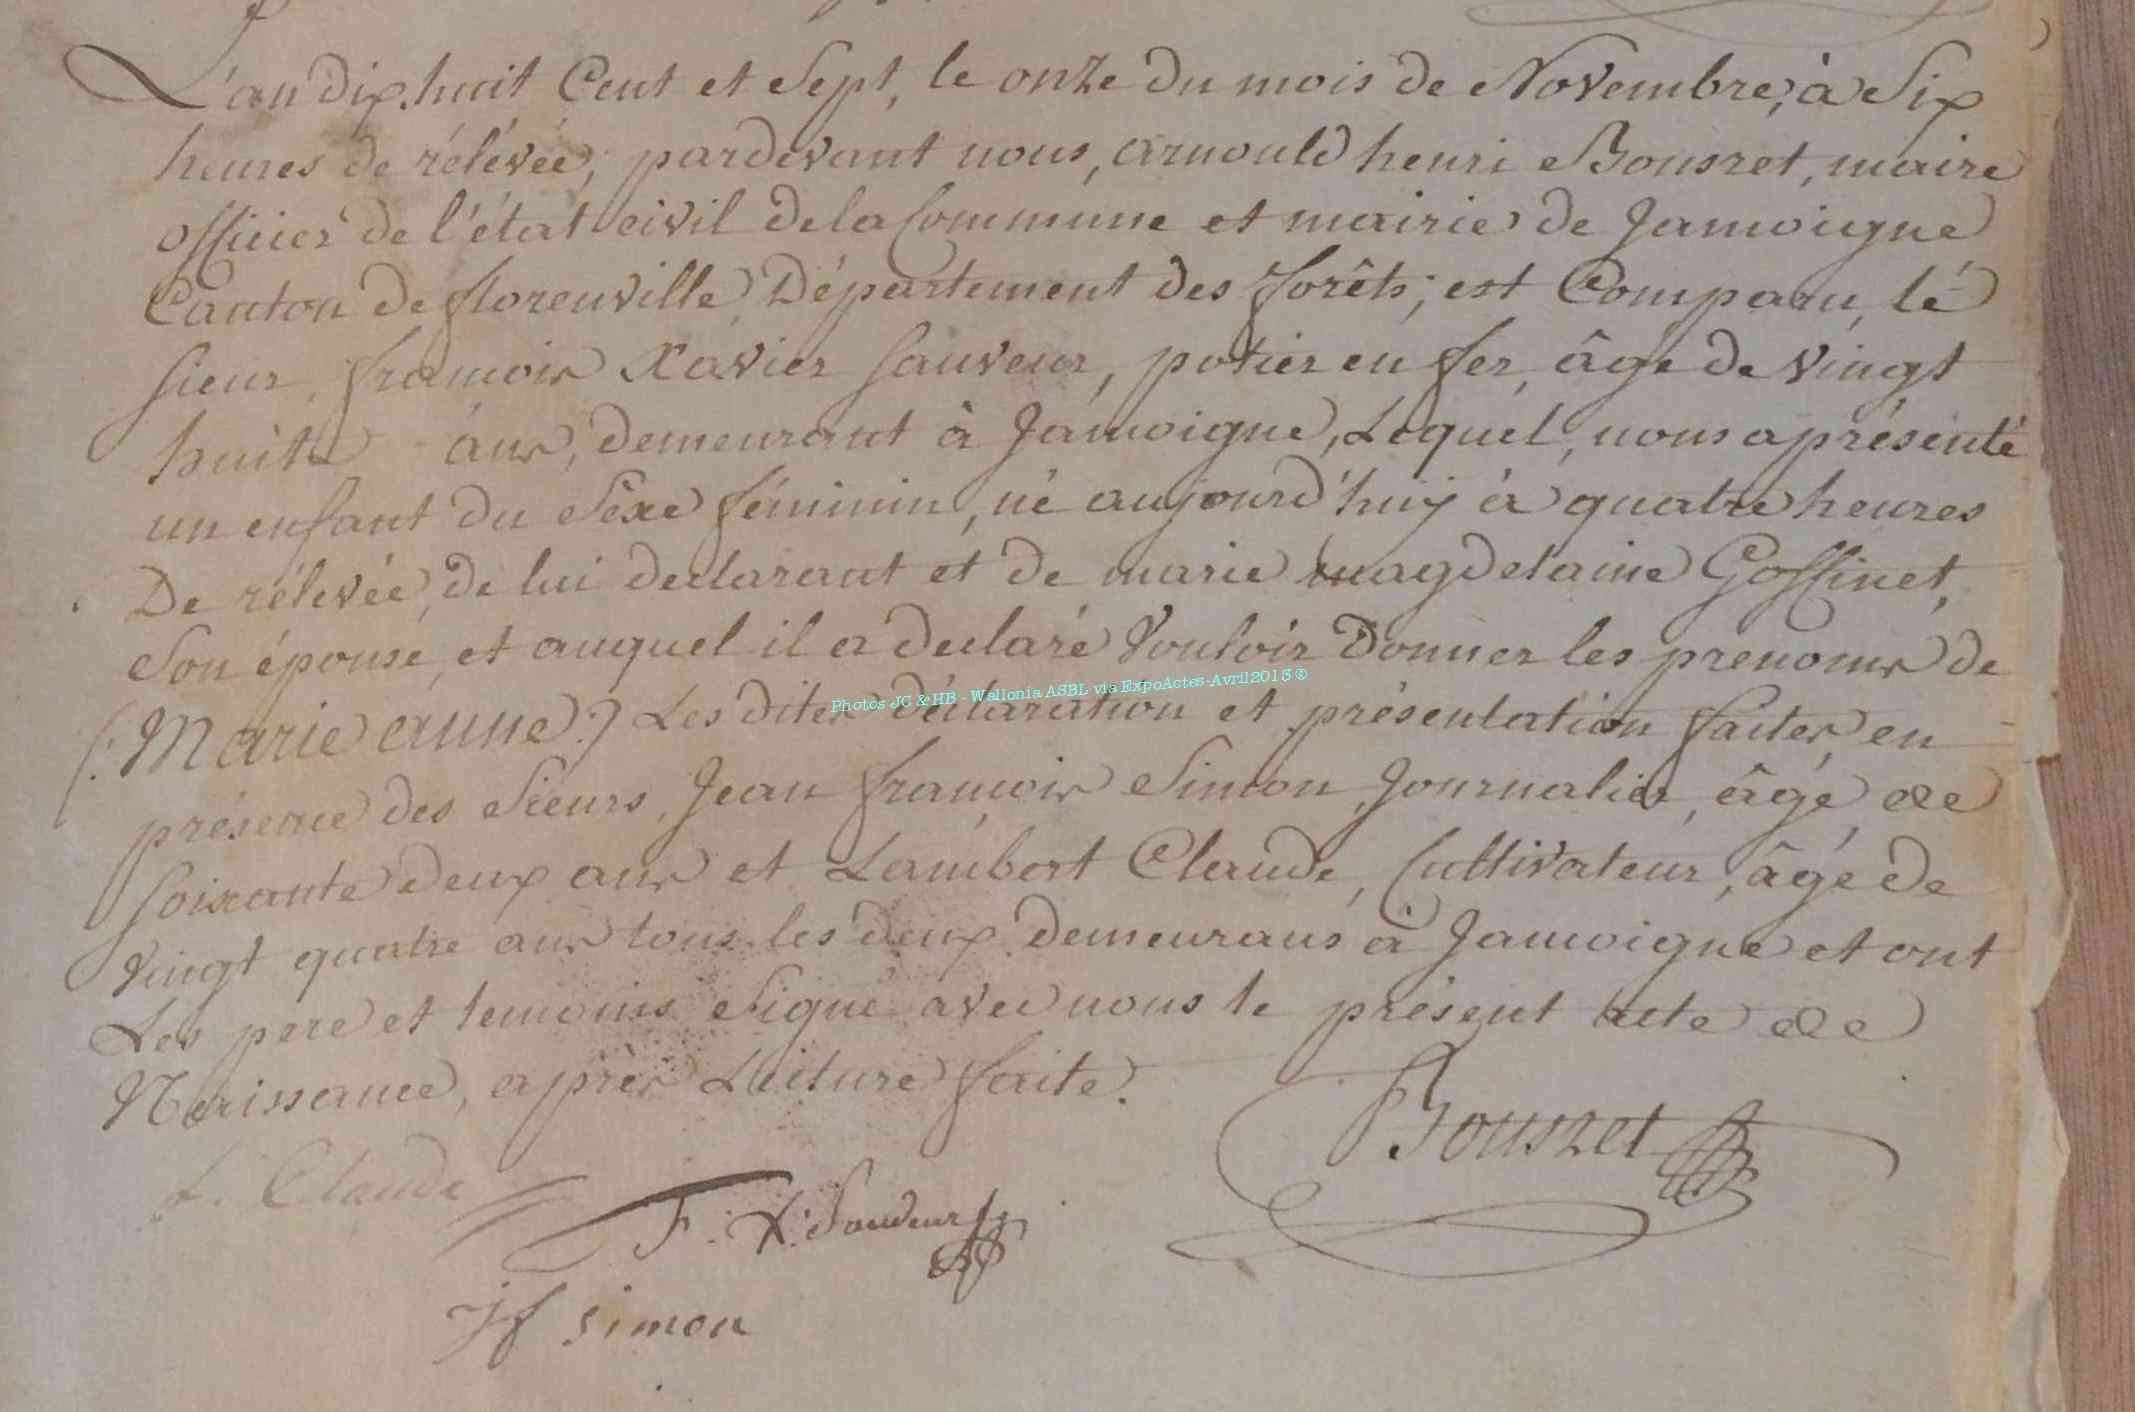 L'an dix huit Cent et Sept, le onze du mois de Novembre, à Six
heures de rélévée, pardevant nous, arnould henri Bousret, maire
officier de l'état civil de la Commune et mairie de Jamoigne
Canton de florenville, Département des forêts; est Comparu, lé
sieur, francois Xavier Sauveur, potier en fer, âgé de vingt
huite ans, demeurant à Jamoigne, Lequel, nous a présenté
un enfant du Séxe féminin, né aujourd'huy à quatre heures
De rélevée, de lui declarant et de marie magdelaine Goffinet,
Son épouse, et auquel il a declaré Vouloir Donner les prenoms de
(: Marie anne :) Les dites déclaration et présentation faites en
présence des Sieurs, Jean françois Simon, Journalier, âgé de
soixante deux ans et Lambert Claude, Cultivateur, âgé de
Vingt quatre ans tous les deux Demeurans à Jamoigne et ont
Les pere et temoins Signé avec nous le présent acte de
Naissance, après Lecture faite.
Bousret
L. Claude
F. X. Sauveur
jf simon
Photos JC & HB - Wallonia ASBL via ExpoActes-Avril2013 ®